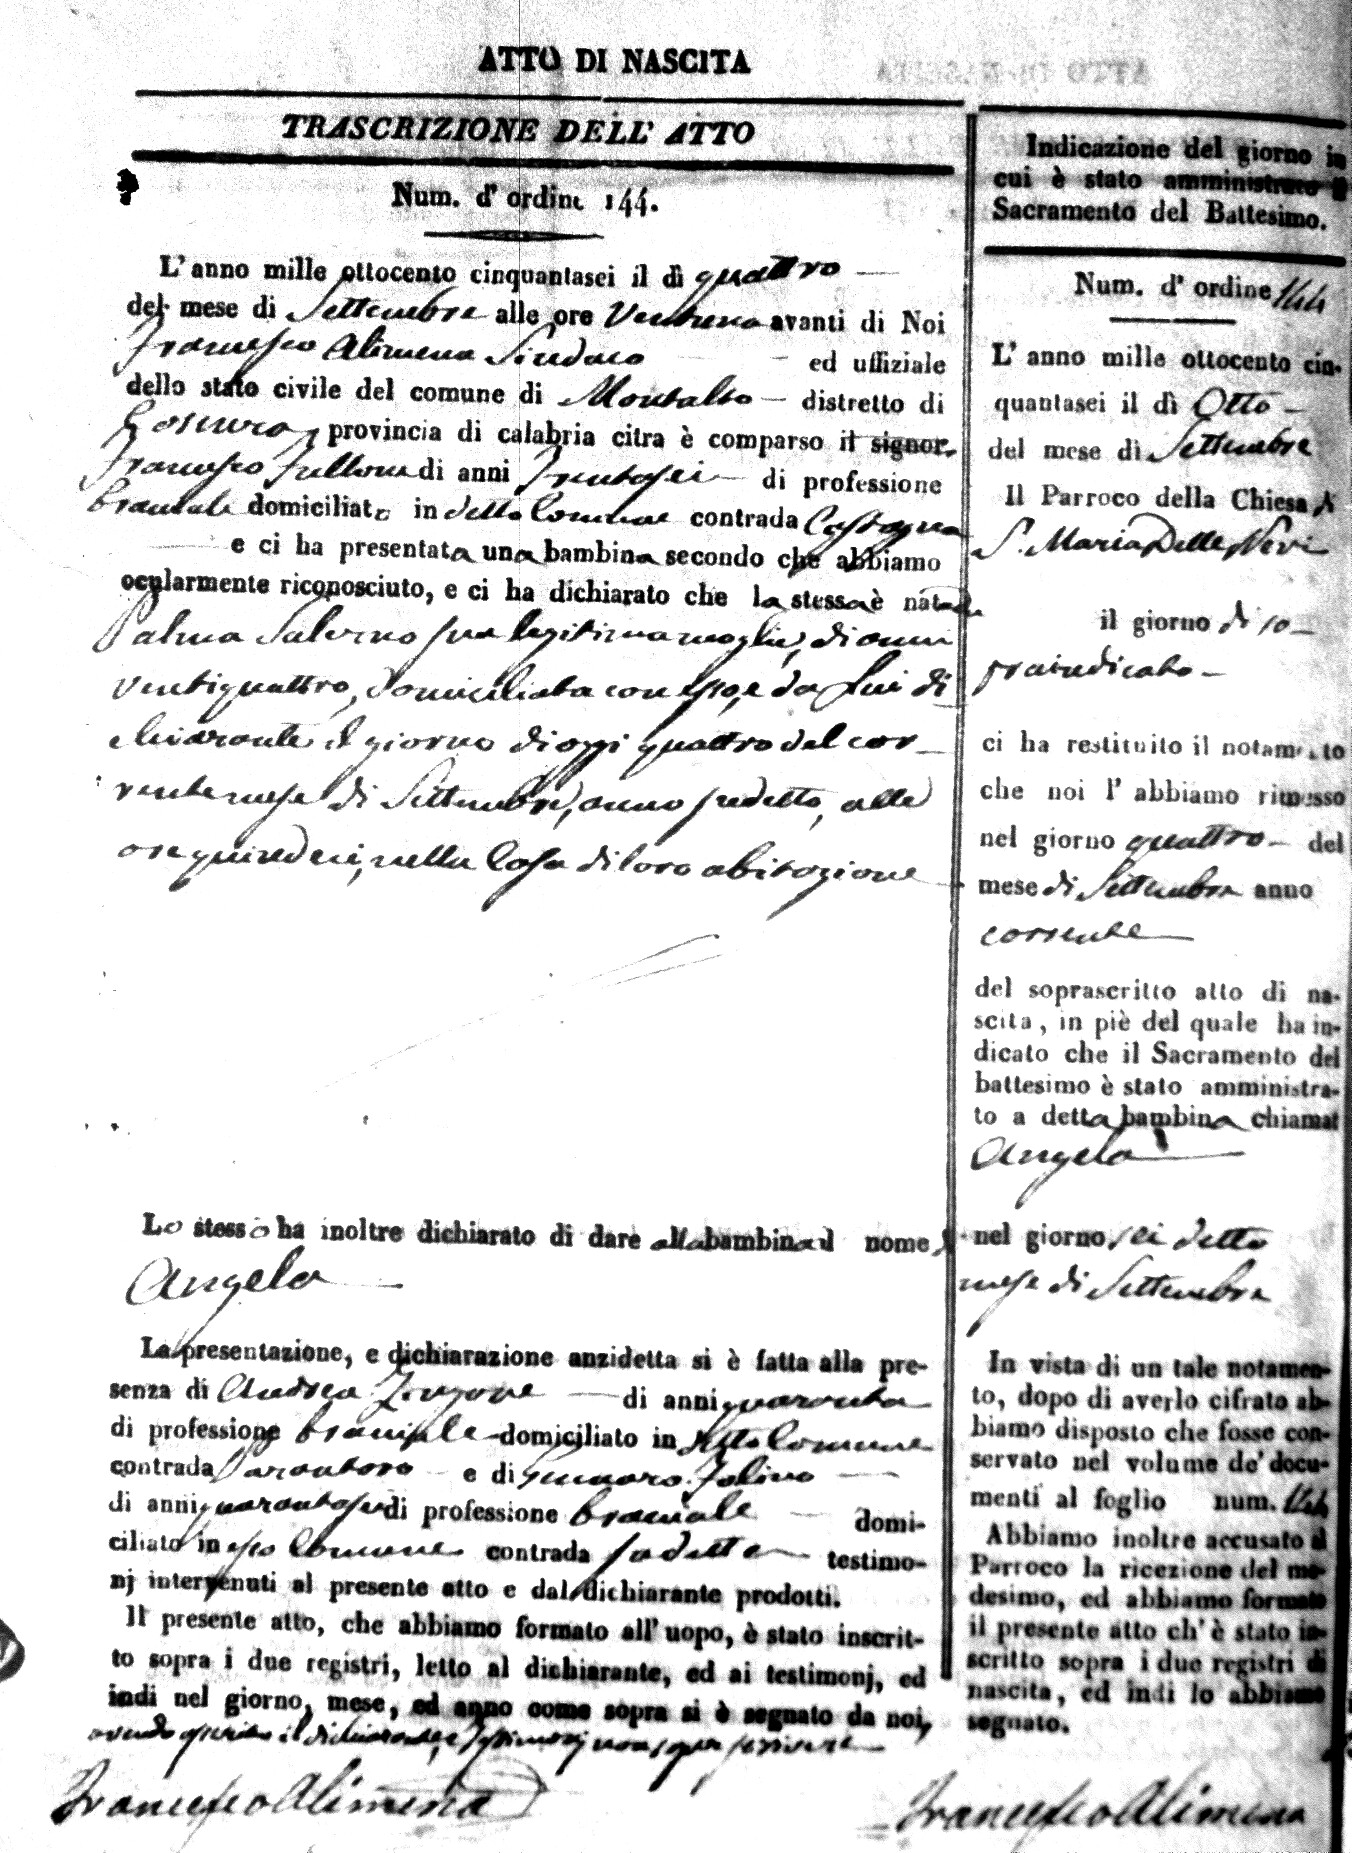 ATTO DI NASCITA
TRASCRIZIONE DELL' ATTO
Num. d' ordine 144.
L'anno mille ottocento cinquantasei il dì quattro
del mese di Settembre alle ore Ventuno avanti di Noi
Francesco Alimena Sindaco ed uffiziale
dello stato civile del comune di Montalto distretto di
Cosenza, provincia di calabria citra è comparso il signor.
Francesco di anni Trentasei di professione
Bracciale domiciliato in detto Comune contrada Castagna
e ci ha presentata una bambina secondo che abbiamo
ocularmente riconosciuto, e ci ha dichiarato che la stessa è nata da
Palma Salerno sua legittima moglie, di anni
ventiquattro, domiciliata con esso, e da Lui di
chiarante il giorno di oggi quattro del cor_
rente mese di Settembre, anno sudetto, alle
ore quindeci, nella Casa di loro abitazione
Lo stesso ha inoltre dichiarato di dare alla bambina il nome di
Angela
La presentazione, e dichiarazione anzidetta si è fatta alla pre-
senza di Andrea di anni quaranta
di professione bracciale domiciliato in detto Comune
contrada e di Gennaro
di anni di professione bracciale domi-
ciliato in esso Comune contrada sudetta testimo-
nj intervenuti al presente atto e dal dichiarante prodotti.
Il presente atto, che abbiamo formato all' uopo, è stato inscrit-
to sopra i due registri, letto al dichiarante, ed ai testimonj, ed
indi nel giorno, mese, ed anno come sopra si è segnato da noi,
avendo il dichiarante, e Testimonj non saper scrivere
Francesco Alimena
Indicazione del giorno in
cui è stato amministrato il
Sacramento del Battesimo.
Num. d' ordine 144
L' anno mille ottocento cin-
quantasei il dì Otto
del mese di Settembre
Il Parroco della Chiesa di
S. Maria Delle Nevi
il giorno di so_
praindicato
ci ha restituito il notamento
che noi l' abbiamo rimesso
nel giorno quattro del
mese di Settembre anno
corrente
del soprascritto atto di na-
scita, in piè del quale ha in-
dicato che il Sacramento del
battesimo è stato amministra-
to a detta bambina chiamat
Angela
nel giorno sei detto
mese di Settembre
In vista di un tale notamen-
to, dopo di averlo cifrato ab-
biamo disposto che fosse con-
servato nel volume de' docu-
menti al foglio num. 144
Abbiamo inoltre accusato al
Parroco la ricezione del me-
desimo, ed abbiamo formato
il presente atto ch' è stato in-
scritto sopra i due registri di
nascita, ed indi lo abbiamo
segnato.
Francesco Alimena